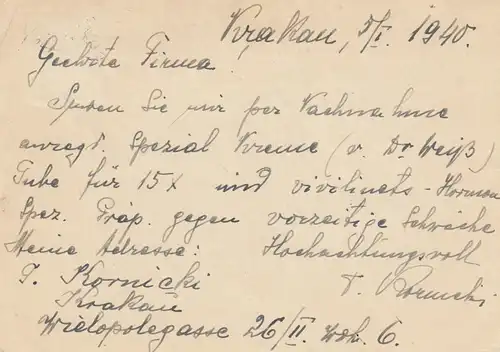 Krakau, 5/I. 1940.
Geehrte Firma!
Senden Sie mir per Nachnahme
anregd. Spezial Kreme (v. Dr Weiß)
Tube für 15 x und - Hormon
Spez. Präp. gegen vorzeitige Schwäche
Meine Adresse: Hochachtungsvoll
T. Kornicki T. Kornicki
Krakau
Wielopolegasse 26/II. Woh. 6.